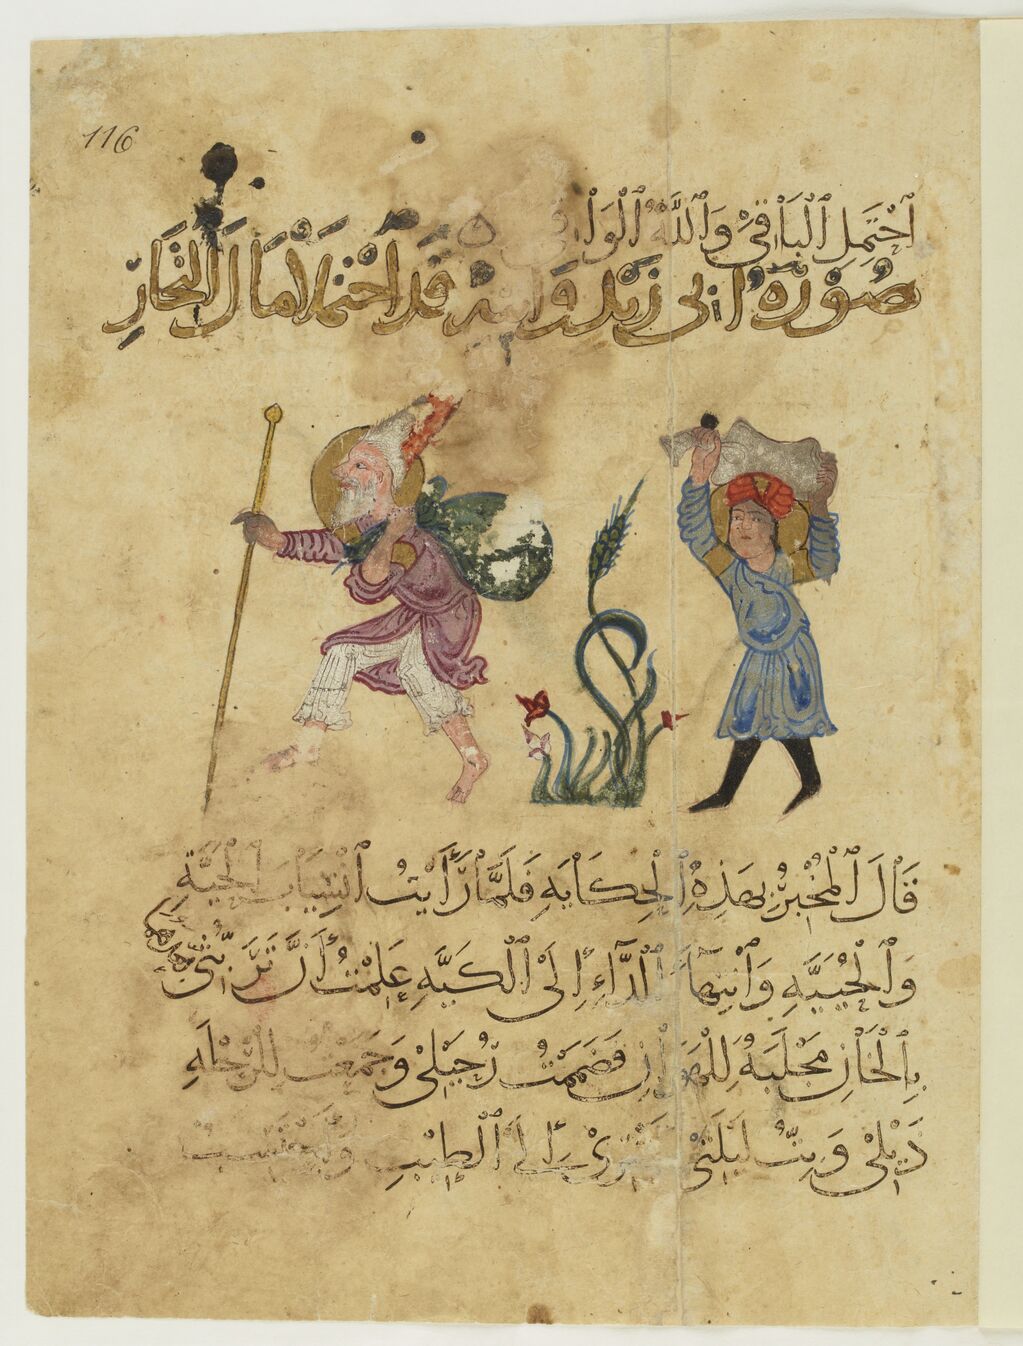 116
اَحْتَمِلِ الْبَاقِيْ وَاللّٰهُ الْوَاقِي
صُوْرَةُ ابي زَيْد وَابنه قَد احْتملَا مَال التجَار
قَالَ الْمُخْبِرُ بِهَذِهِ الْحِكَايَةِ فَلَمَّا رَأَيْتُ انْسِيَابَ الْحَيَّةِ
وَالْحُيَيَّةِ وَانْتِهَآءَ الدَّآءِ إِلَى الْكَيَّةِ عَلِمْتُ أَنَّ تَرَبُّثِي
بِالْخَانِ مَجْلَبَةٌ لِلْهَوَانِ فَضَمَمْتُ رُحَيْلِيْ وَجَمَعْتُ لِلرِّحْلَةِ
ذَيْلِيْ وَبِتُّ لَيْلَتِيْ أَسْرِيْ إِلَى الْطِيْبِ وَأَحْتَسِبُ